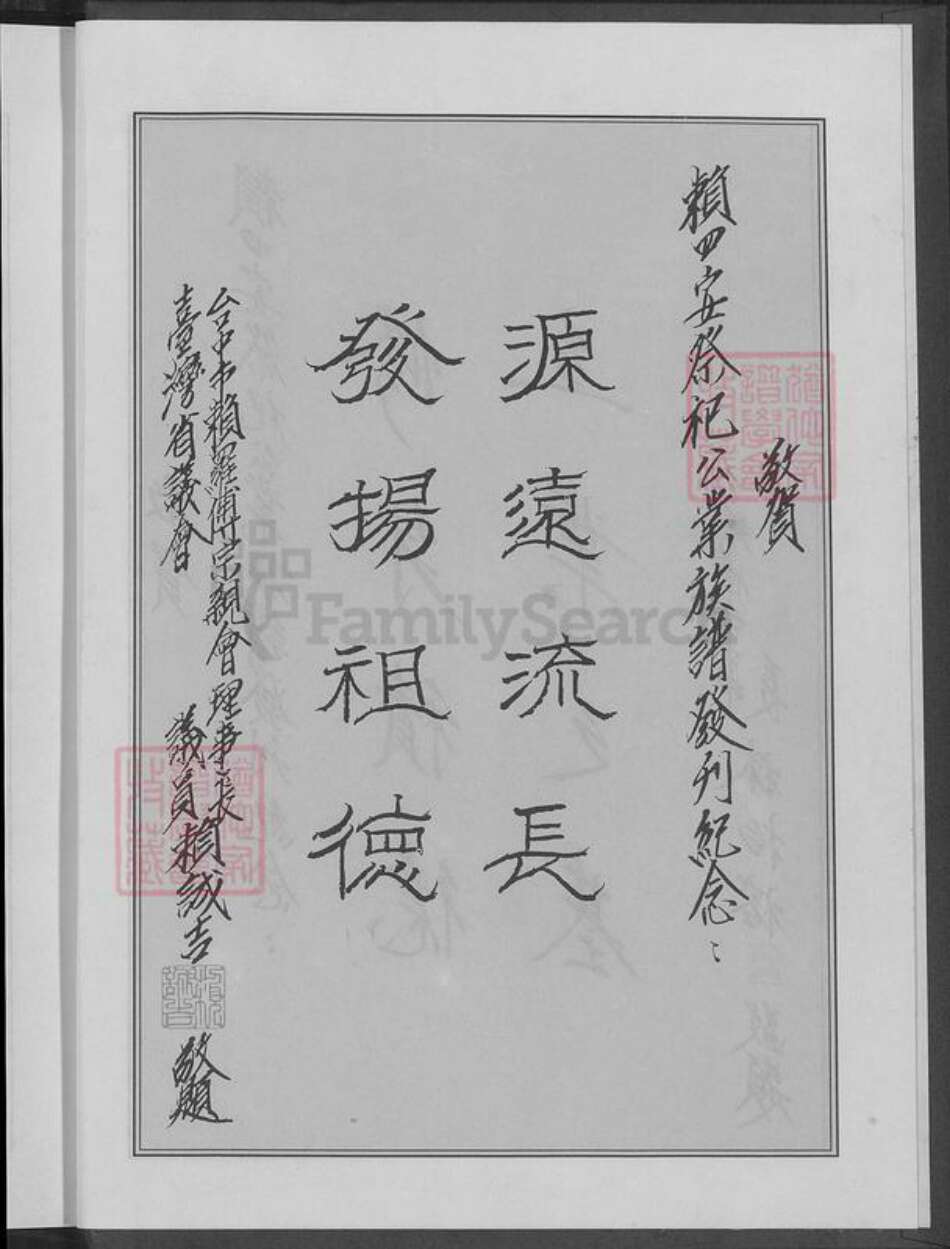 敬賀
賴四安祭祀公業族譜發刊紀念：
源遠流長
發揚祖德
台中市賴羅傅宗親會理事長
臺灣省議會議員賴誠吉敬題
FamilySearch